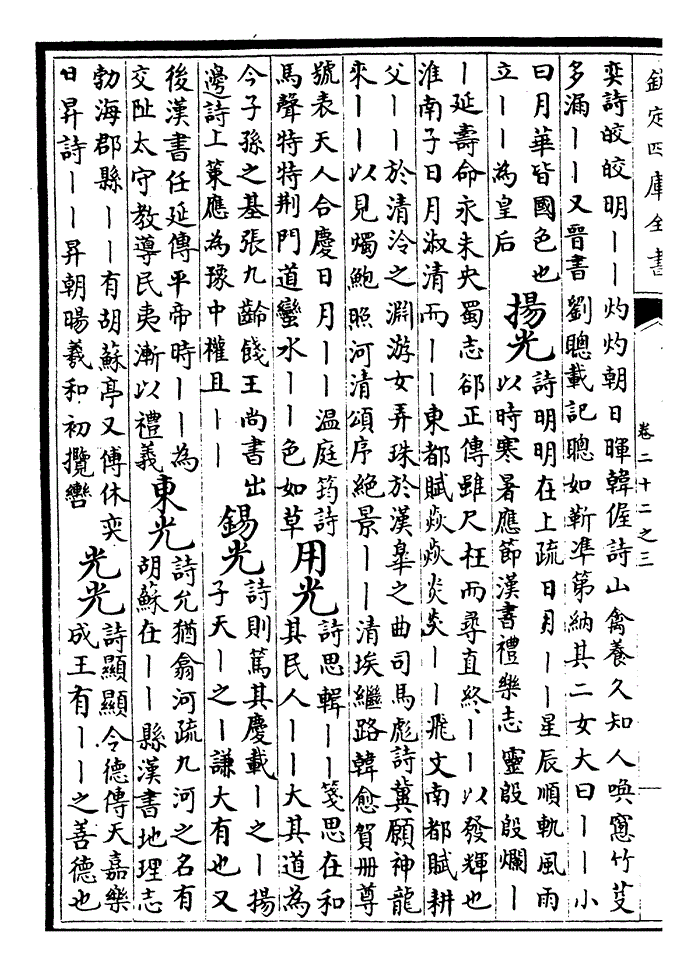 欽定四庫全書
卷二十二之三
奕詩皎皎明丨丨灼灼朝日暉韓偓詩山禽養久知人喚窻竹芟
多漏丨丨又晉書劉聰載記聰如靳準第納其二女大曰丨丨小
曰月華皆國色也
立丨丨為皇后
揚光
詩明明在上疏日月丨丨星辰順軌風雨
以時寒暑應節漢書禮樂志靈殷殷爛丨
丨延壽命永未央蜀志郤正傳雖尺枉而尋直終丨丨以發輝也
淮南子日月淑清而丨丨東都賦焱焱炎炎丨丨飛文南都賦耕
父丨丨於清泠之淵游女弄珠於漢臯之曲司馬彪詩冀願神龍
來丨丨以見燭鮑照河清頌序絕景丨丨清埃繼路韓愈賀冊尊
號表天人合慶日月丨丨温庭筠詩
馬聲特特荆門道蠻水丨丨色如草
用光
詩思輯丨丨箋思在和
其民人丨丨大其道為
今子孫之基張九齡餞王尚書出
邊詩上策應為豫中權且丨丨
錫光
詩則篤其慶載丨之丨揚
子天丨之丨謙大有也又
後漢書任延傳平帝時丨丨為
交阯太守教導民夷漸以禮義
東光
詩允猶翕河疏九河之名有
胡蘇在丨丨縣漢書地理志
勃海郡縣丨丨有胡蘇亭又傅休奕
日昇詩丨丨昇朝暘羲和初攬轡
光光
詩顯顯令德傳天嘉樂
成王有丨丨之善德也